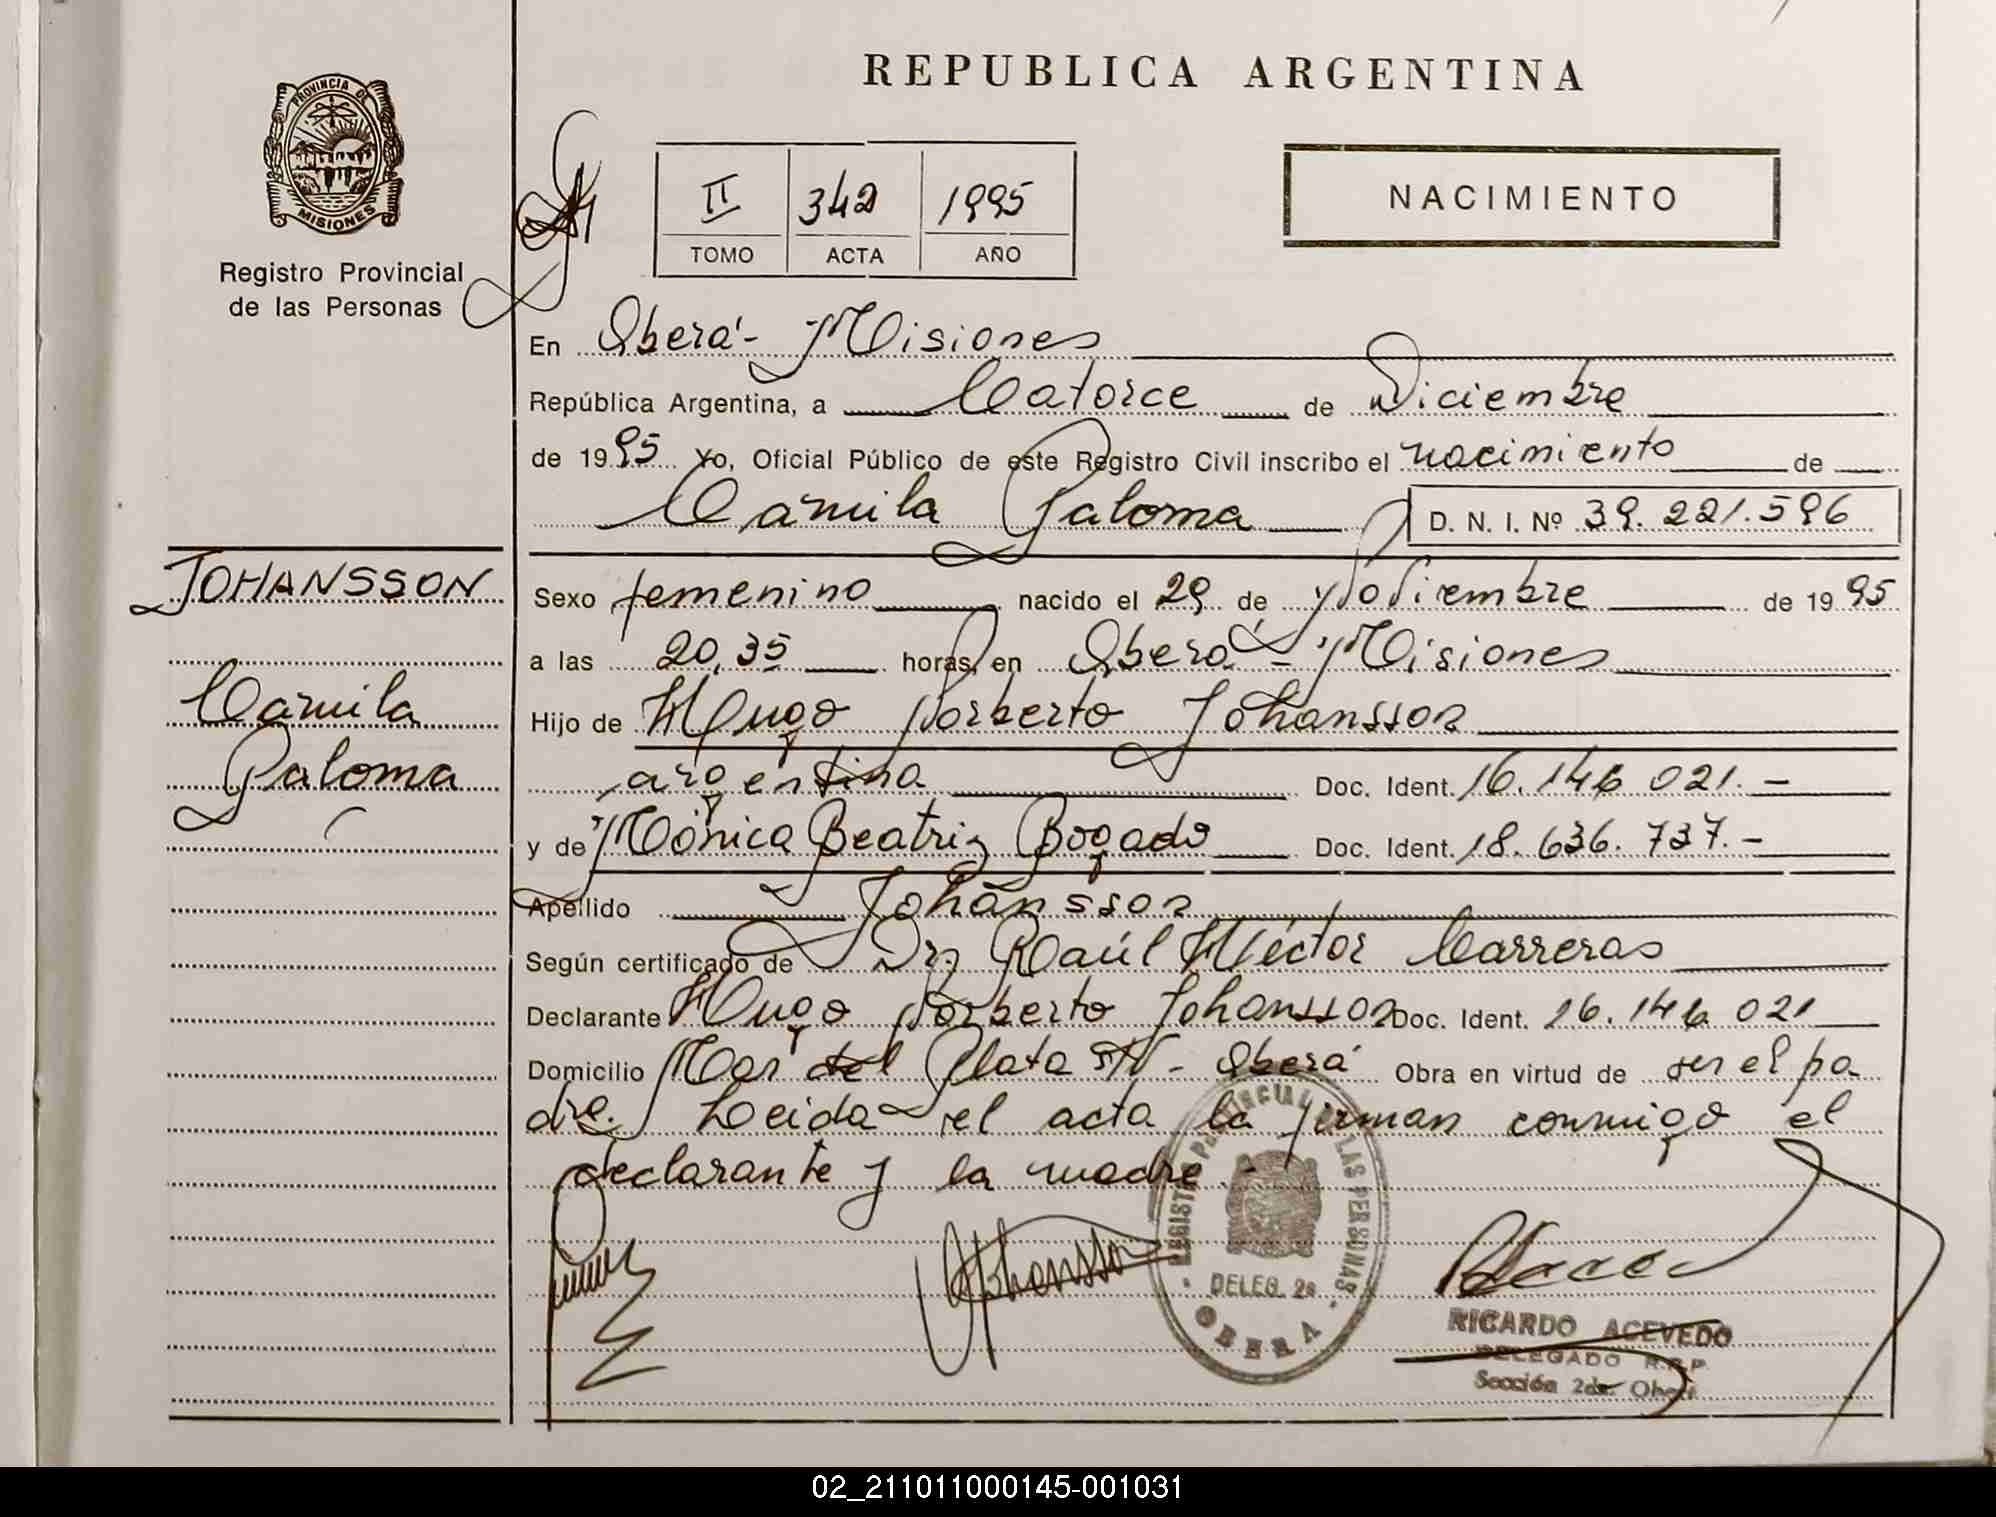 REPUBLICA ARGENTINA
PROVINCIA DE
MISIONES
Registro Provincial
de las Personas
II 342 1995
TOMO ACTA AÑO
NACIMIENTO
En Oberá - Misiones
República Argentina, a Catorce de Diciembre
de 1995 Yo, Oficial Público de este Registro Civil inscribo el nacimiento de
Camila Paloma D. N. I. Nº 39.221.596
JOHANSSON
Camila
Paloma
Sexo femenino nacido el 29 de Noviembre de 1995
a las 20,35 horas, en Oberá - Misiones
Hijo de Hugo Norberto Johansson
argentina Doc. Ident. 16.146 021.-
y de Mónica Beatriz Bogado Doc. Ident. 18.636.737.-
Apellido Johansson
Según certificado de Dr. Raúl Héctor Carreras
Declarante Hugo Norberto Johansson Doc. Ident. 16.146 021
Domicilio Mar del Plata S/N - Oberá Obra en virtud de ser el pa
dre. Leida el acta la firman conmigo el
declarante y la madre.-
Johansson
REGISTRO PROVINCIAL DE LAS PERSONAS
DELEG. 2a
OBERA
RICARDO ACEVEDO
DELEGADO R.P.P.
Sección 2da. Oberá
02_211011000145-001031